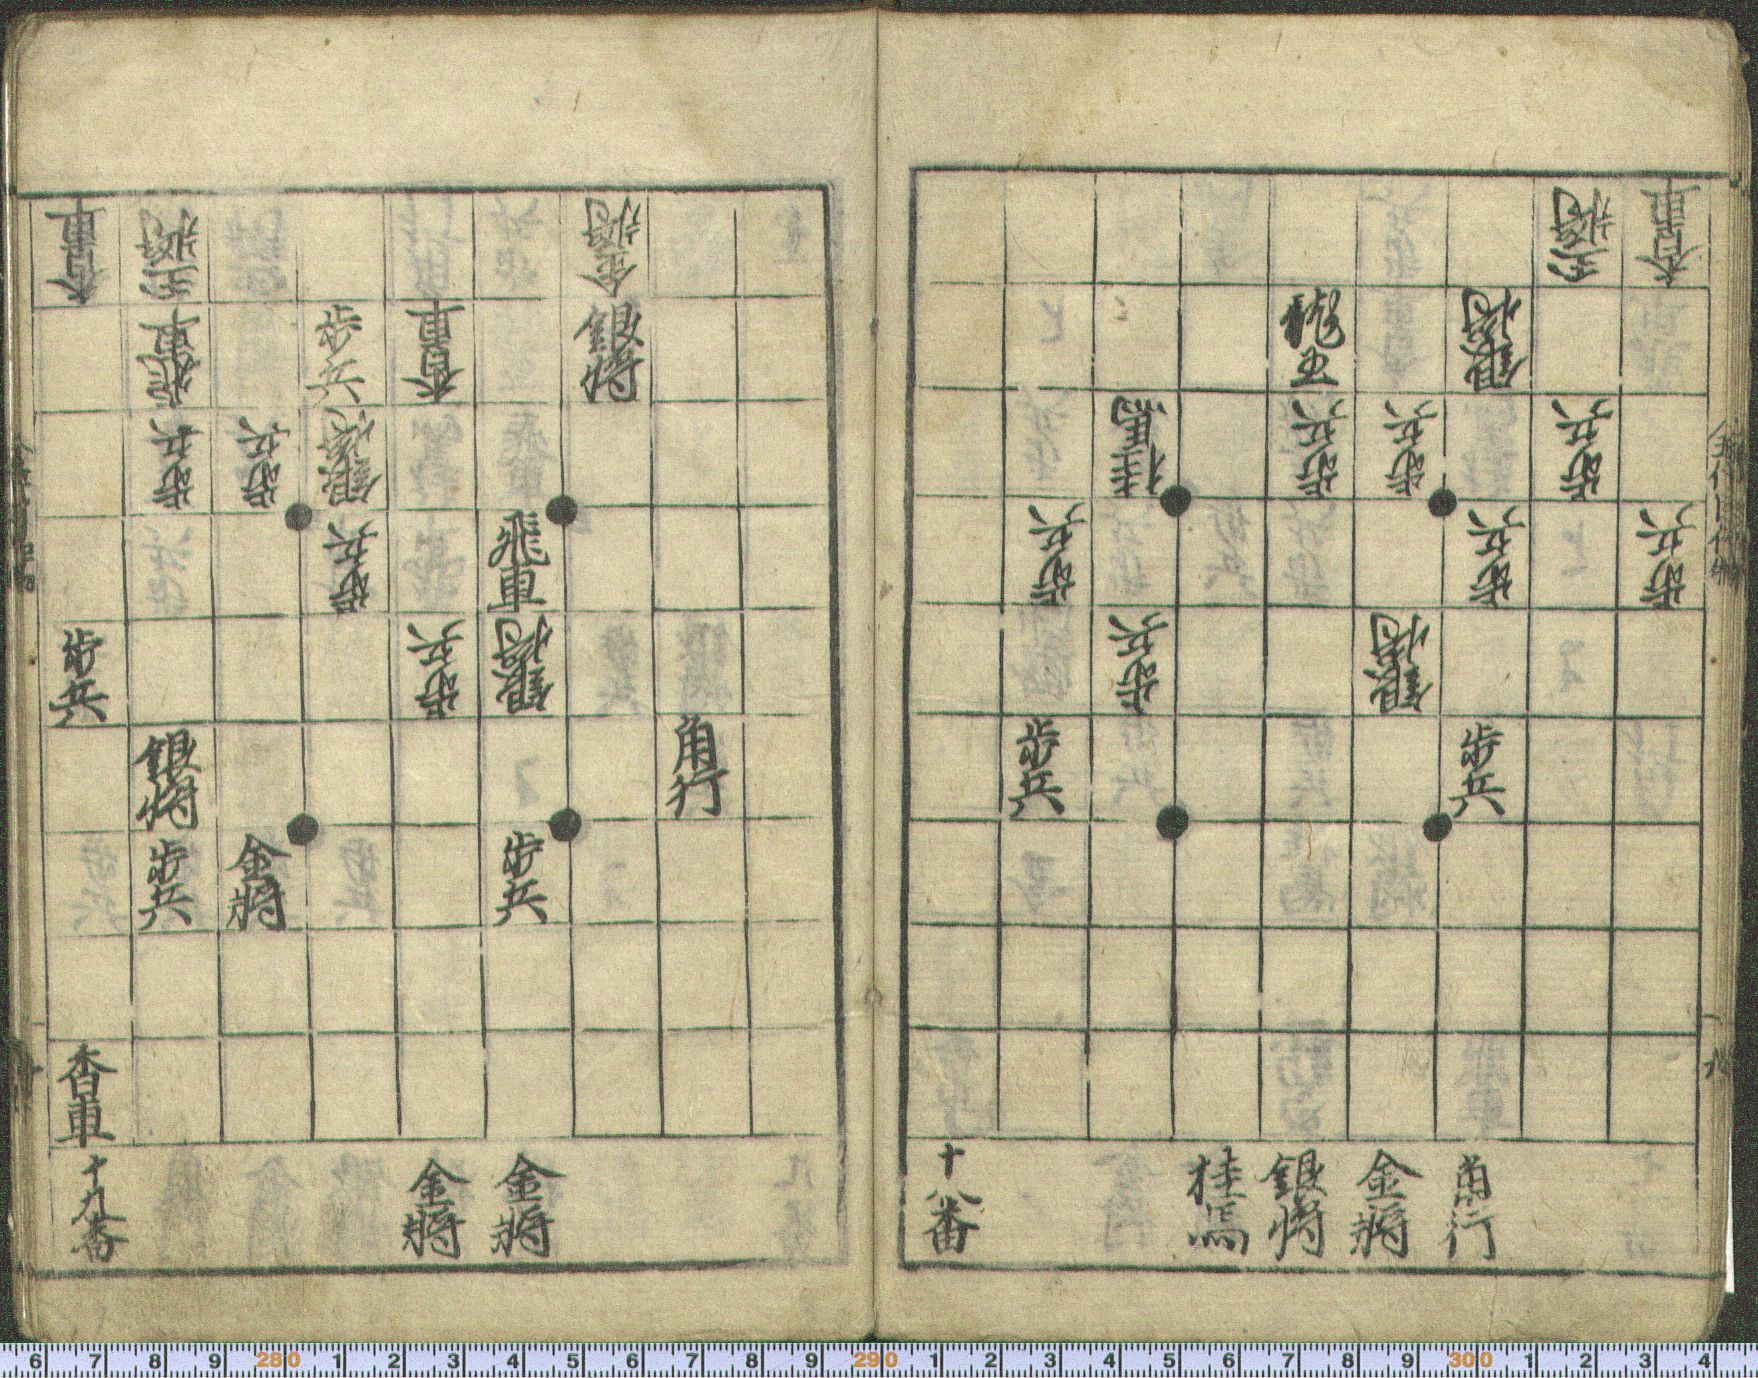 香車
玉将
龍王
銀将
桂馬
歩兵
歩兵
歩兵
歩兵
歩兵
歩兵
歩兵
銀将
歩兵
歩兵
角行
金将
銀将
桂馬
十八番
金将
玉将
香車
銀将
香車
歩兵
飛車
銀将
歩兵
歩兵
飛車
歩兵
銀将
歩兵
歩兵
角行
銀将
歩兵
金将
歩兵
香車
金将
金将
十九番
6 7 8 9 280 1 2 3 4 5 6 7 8 9 290 1 2 3 4 5 6 7 8 9 300 1 2 3 4